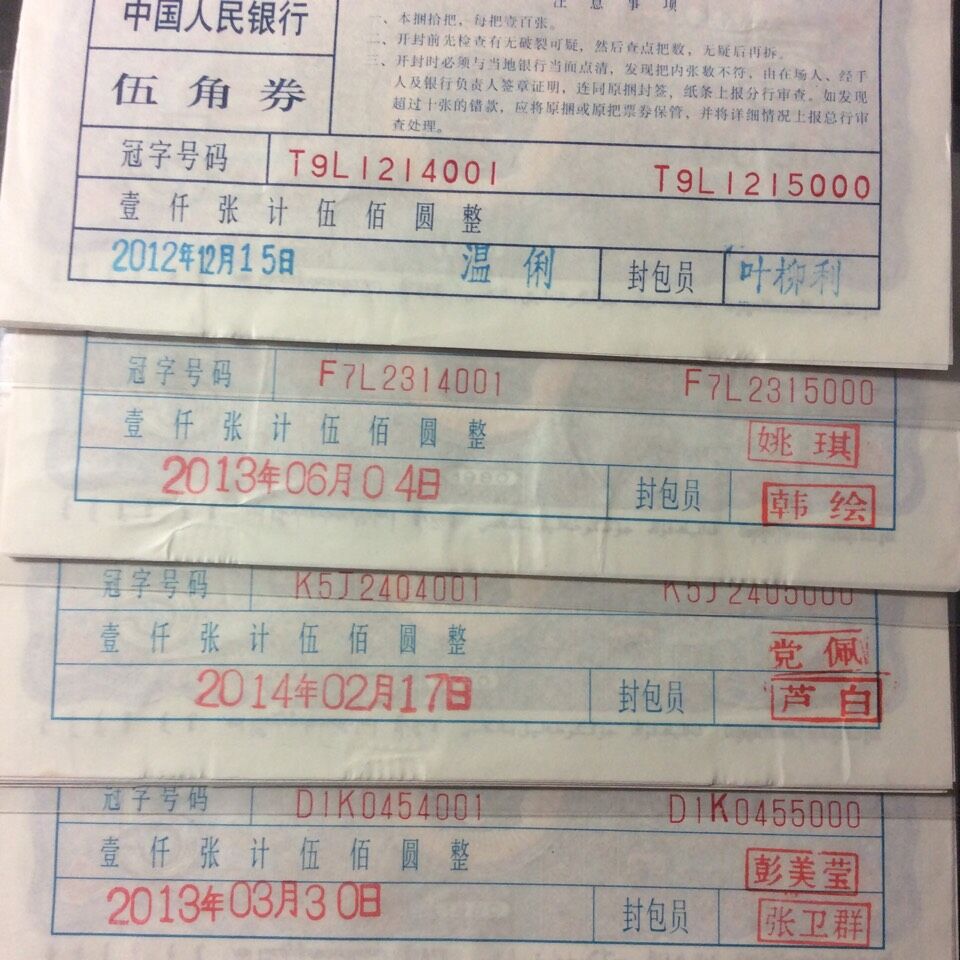 注意事项
中国人民银行
伍角券
一、本捆拾把，每把壹百张。
二、开封前先检查有无破裂可疑，然后查点把数，无疑后再拆。
三、开封时必须与当地银行当面点清，发现把内张数不符，由在场人、经手
人及银行负责人签章证明，连同原捆封签，纸条上报分行审查。如发现
超过十张的错款，应将原捆或原把票券保管，并将详细情况上报总行审
查处理。
冠字号码 T9L1214001 T9L1215000
壹仟张计伍佰圆整
2012年12月15日 温俐 封包员 叶柳利
冠字号码 F7L2314001 F7L2315000
壹仟张计伍佰圆整 姚琪
2013年06月04日 封包员 韩绘
冠字号码 K5J2404001 K5J2405000
壹仟张计伍佰圆整 党佩
2014年02月17日 封包员 芦白
冠字号码 D1K0454001 D1K0455000
壹仟张计伍佰圆整 彭美莹
2013年03月30日 封包员 张卫群